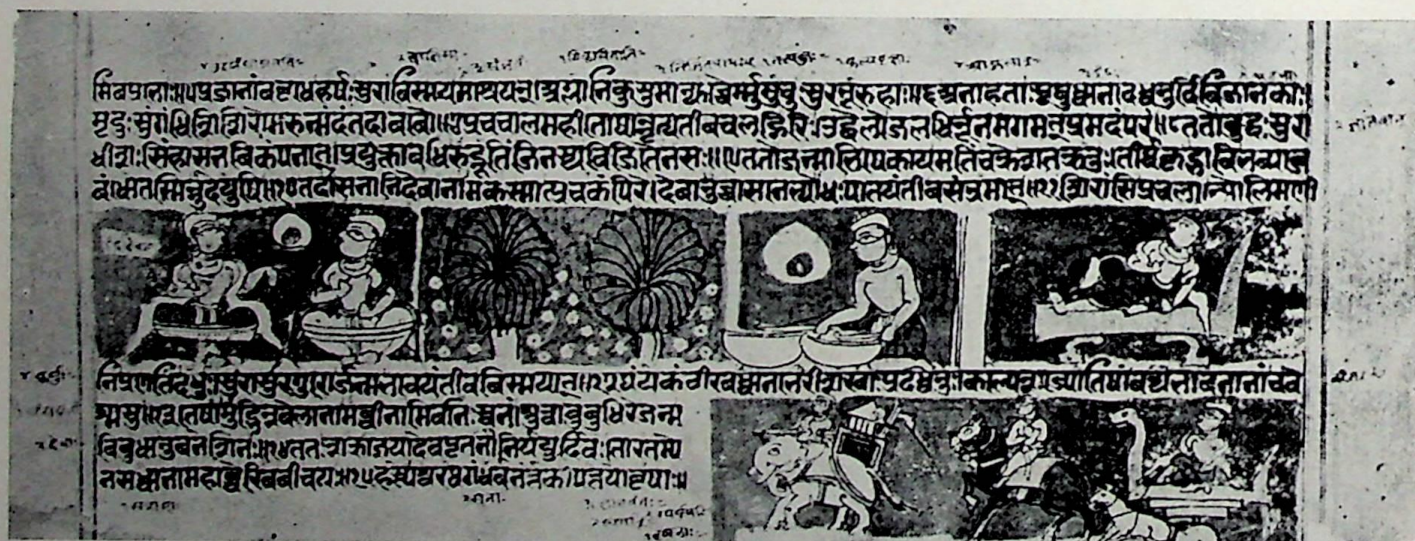 मिवप्रजाः॥५प्रजानांववृधेहर्षःसुराविस्मयमाश्रयन्।अम्लानिकुसुमान्युच्चैर्मुमुचुःसुरभूरुहाः॥६अनाहताःपृथुध्वानादध्वनुर्दिविजानकाः।
मृदुःसुगंधिःशिशिरोमरुन्मंदंतदाववौ॥७प्रचचालमहीतोषान्नृत्यंतीवचलद्गिरिः।उद्वेलोजलधिर्नूनमगमत्प्रमदंपरं॥८ततोबुद्धःसुरा
धीशःसिंहासनविकंपनात्।प्रयुक्तावधिरुद्भूतिंजिनस्यविजितैनसः॥९ततोजन्माभिषेकायमतिंचक्रेशतक्रतुः।तीर्थकृद्भाविभव्याब्ज
बंधौतस्मिन्नुदेयुषि॥१०तदासनानिदेवानामकस्मात्प्रचकंपिरे।देवानुच्चासनेभ्योधःपातयंतीवसंभ्रमात्॥११शिरांसिप्रचलन्मौलिमणी
निप्रणतिंदधुः।सुरासुरगुरोर्जन्मभावयंतीवविस्मयात्॥१२घंटाकंठीरवध्वानभेरीशंखाःप्रदध्वनुः।कल्पेशज्योतिषांवन्यभावनानांचवे
श्मसु॥१३तेषामुद्भिन्नवेलानामब्धीनामिवनिःस्वनं।श्रुत्वाबुबुधिरेजन्म
विबुधाभुवनेशिनः॥१४ततःशक्राज्ञयादेवपृतनानिर्ययुर्दिवः।तारतम्ये
नसध्वानामहाब्धेरिववीचयः॥१५हस्त्यश्वरथगंधर्वनर्तकीपत्तयोवृषाः॥